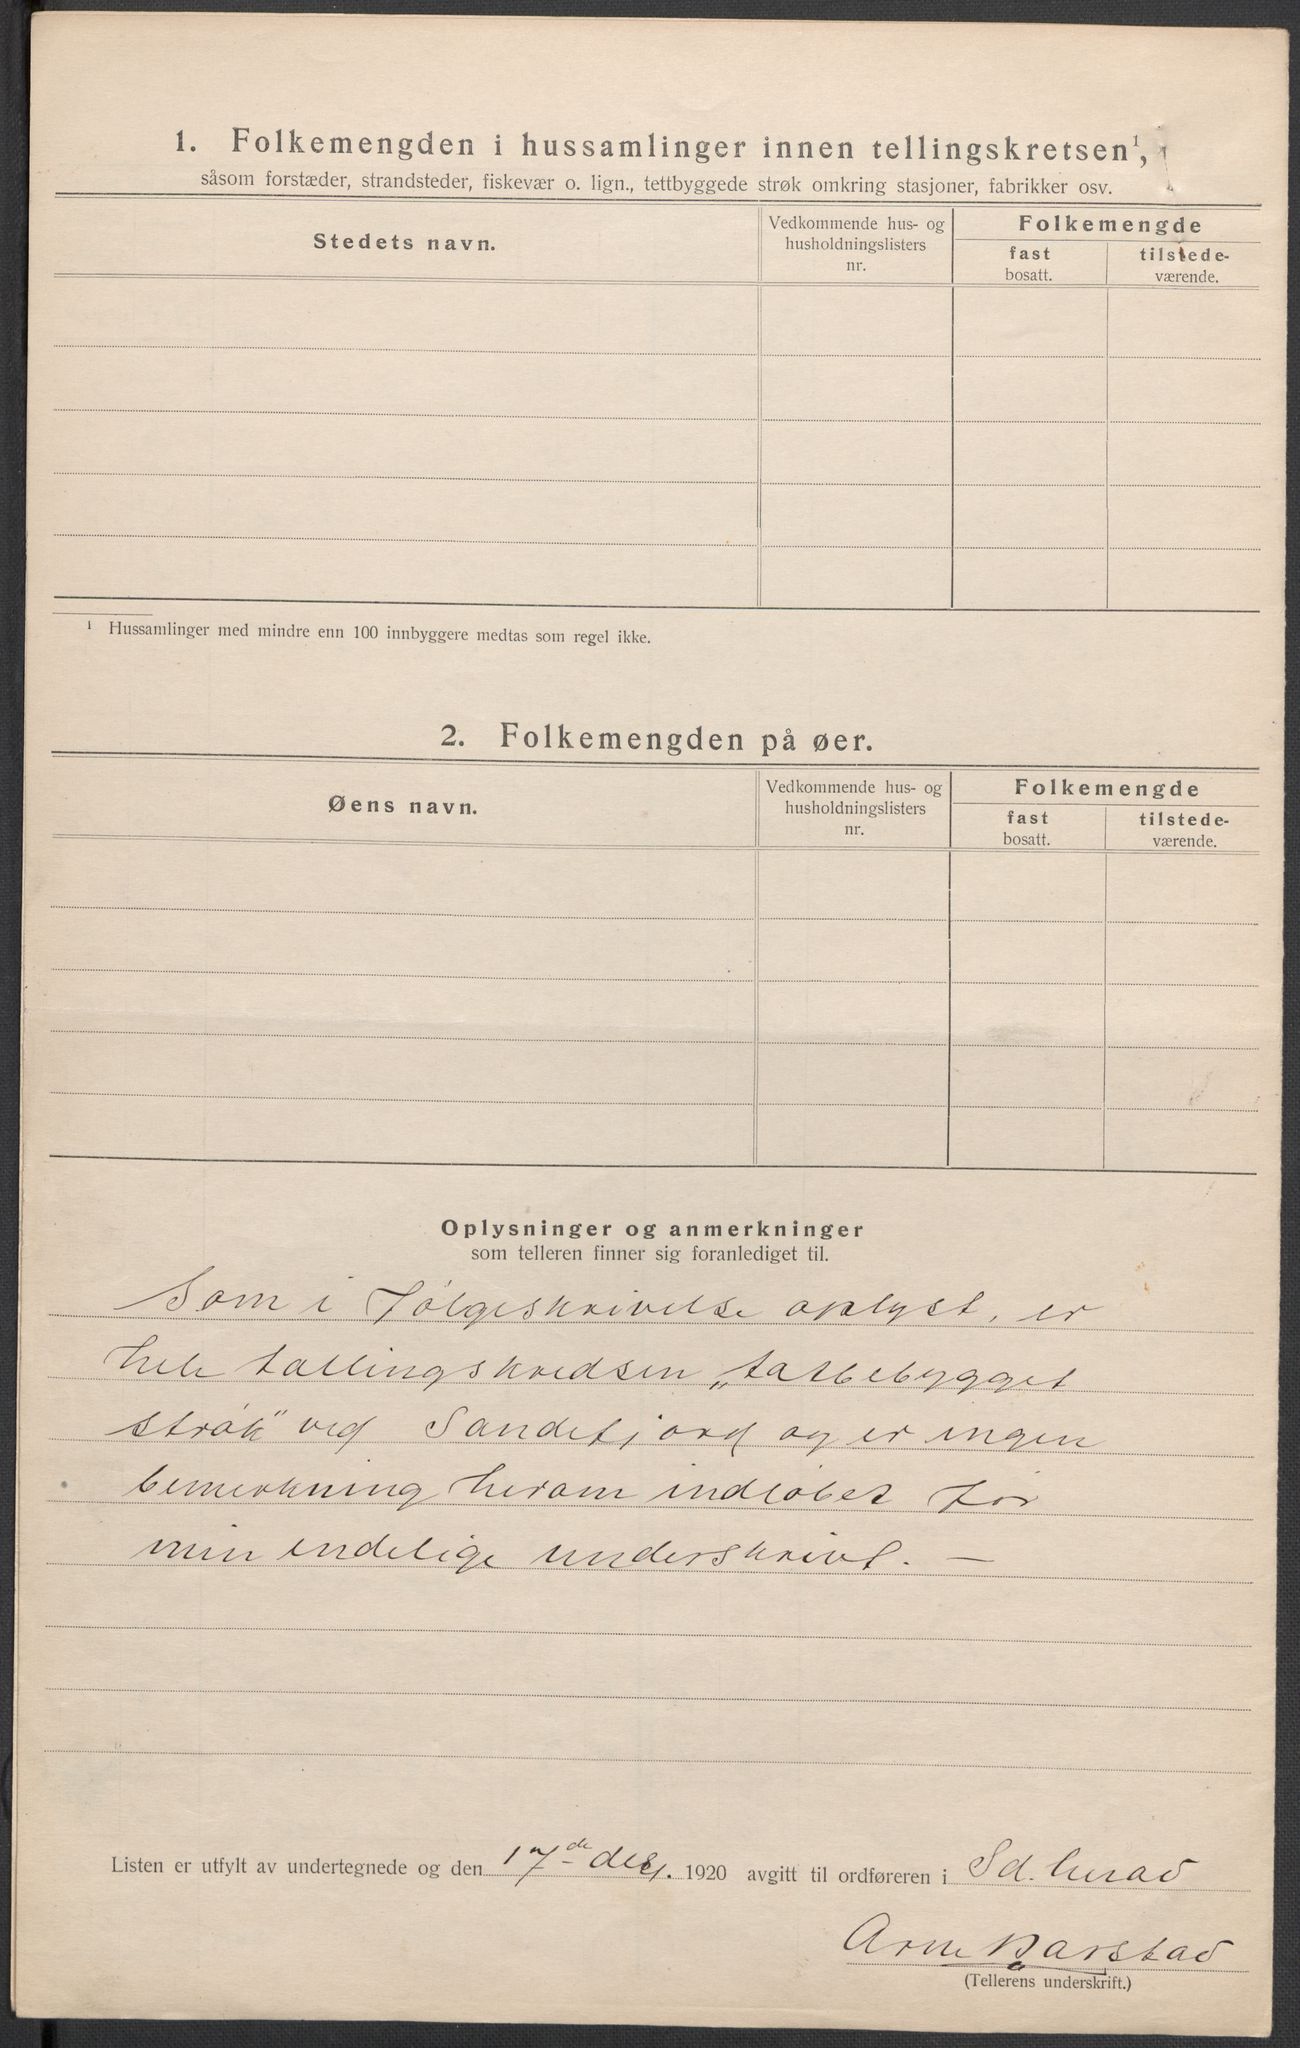 1. Folkemengden i hussamlinger innen tellingskretsen¹,
såsom forstæder, strandsteder, fiskevær o. lign., tettbyggede strøk omkring stasjoner, fabrikker osv.
Stedets navn.
Vedkommende hus- og
husholdningslisters
nr.
Folkemengde
fast
bosatt.
tilstede-
værende.
¹ Hussamlinger med mindre enn 100 innbyggere medtas som regel ikke.
2. Folkemengden på øer.
Øens navn.
Vedkommende hus- og
husholdningslisters
nr.
Folkemengde
fast
bosatt.
tilstede-
værende.
Oplysninger og anmerkninger
som telleren finner sig foranlediget til.
Som i følgeskrivelse oplyst, er
hele tællingskredsen „tætbebygget
strøk" ved Sandefjord og er ingen
bemerkning herom indløbet før
min endelige underskrivt. —
Listen er utfylt av undertegnede og den 17de des. 1920 avgitt til ordføreren i Sd. herad
Arne Barstad
(Tellerens underskrift.)